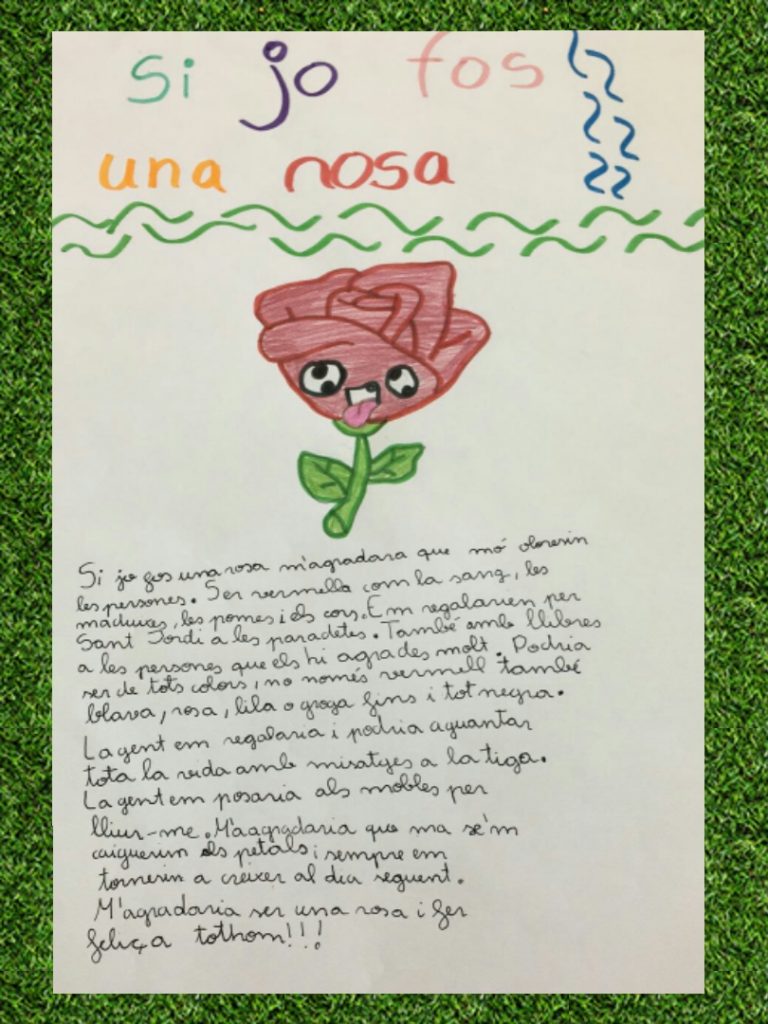 Si jo fos
una rosa
Si jo fos una rosa m'agradara que mó oloresin
les persones. Ser vermella com la sang, les
maduixes, les pomes i els cors. Em regalarien per
Sant Jordi a les paradetes. També amb llibres
a les persones que els hi agrades molt. Podria
ser de tots colors, no només vermell també
blava, rosa, lila o groga fins i tot negra.
La gent em regalaria i podria aguantar
tota la vida amb misatges a la tiga.
La gent em posaria als mobles per
lliur-me. M'aagradaria que ma se'm
caiguerin els petals i sempre em
tornerin a créixer al dia seguent.
M'agradaria ser una rosa i fer
feliça tothom!!!